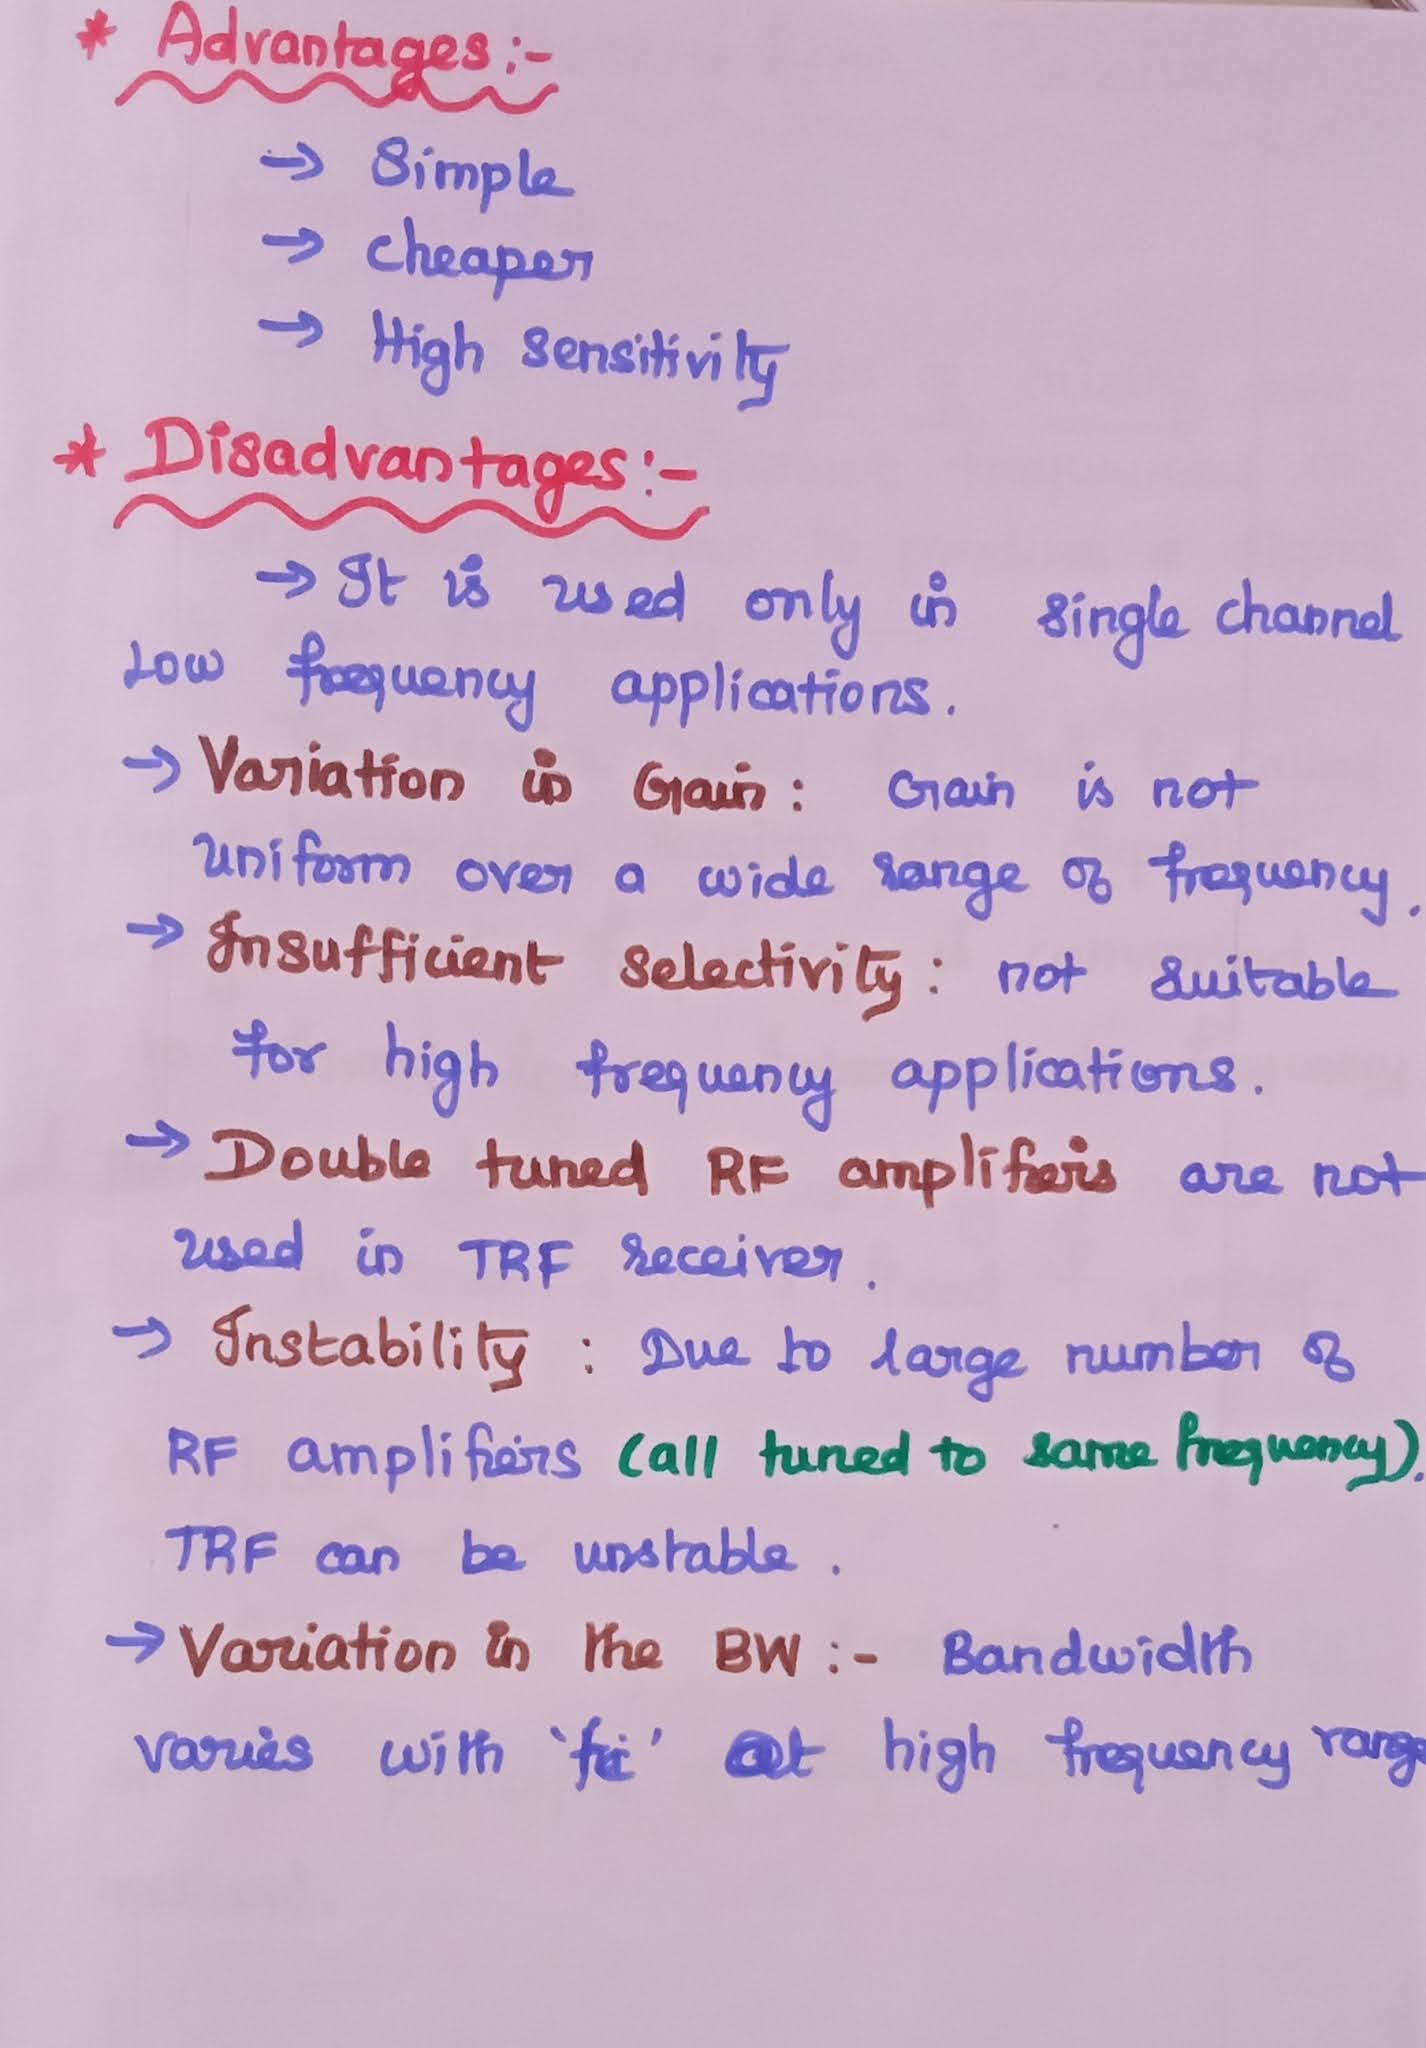 * Advantages:-
→ Simple
→ Cheaper
→ High Sensitivity
* Disadvantages:-
→ It is used only in single channel
Low frequency applications.
→ Variation in Gain: Gain is not
uniform over a wide range of frequency.
→ Insufficient selectivity: not suitable
for high frequency applications.
→ Double tuned RF amplifiers are not
used in TRF receiver.
→ Instability: Due to large number of
RF amplifiers (all tuned to same frequency).
TRF can be unstable.
→ Variation in the BW:- Bandwidth
varies with at high frequency range